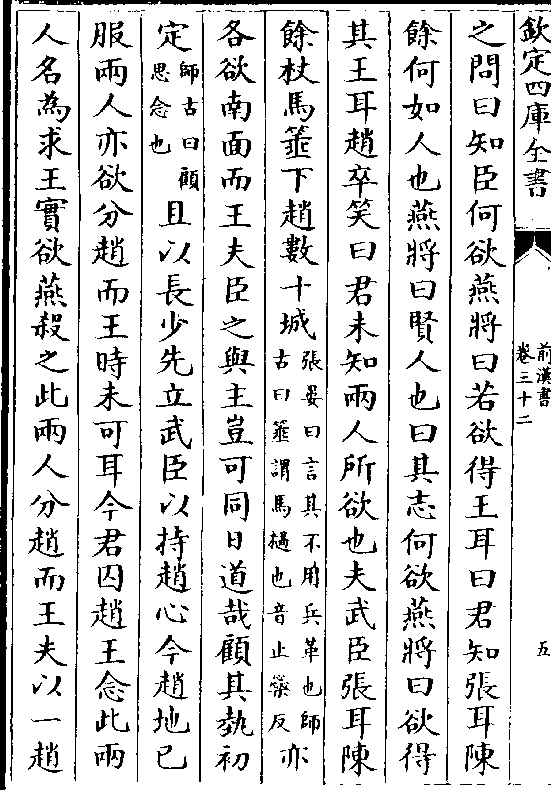 欽定四庫全書
前漢書
卷三十二
五
之問曰知臣何欲燕將曰若欲得王耳曰君知張耳陳
餘何如人也燕將曰賢人也曰其志何欲燕將曰欲得
其王耳趙卒笑曰君未知兩人所欲也夫武臣張耳陳
餘杖馬箠下趙數十城張晏曰言其不用兵革也師古曰箠謂馬檛也音止橤反亦
各欲南面而王夫臣之與主豈可同日道哉顧其埶初
定師古曰顧思念也且以長少先立武臣以持趙心今趙地已
服兩人亦欲分趙而王時未可耳今君囚趙王念此兩
人名為求王實欲燕殺之此兩人分趙而王夫以一趙